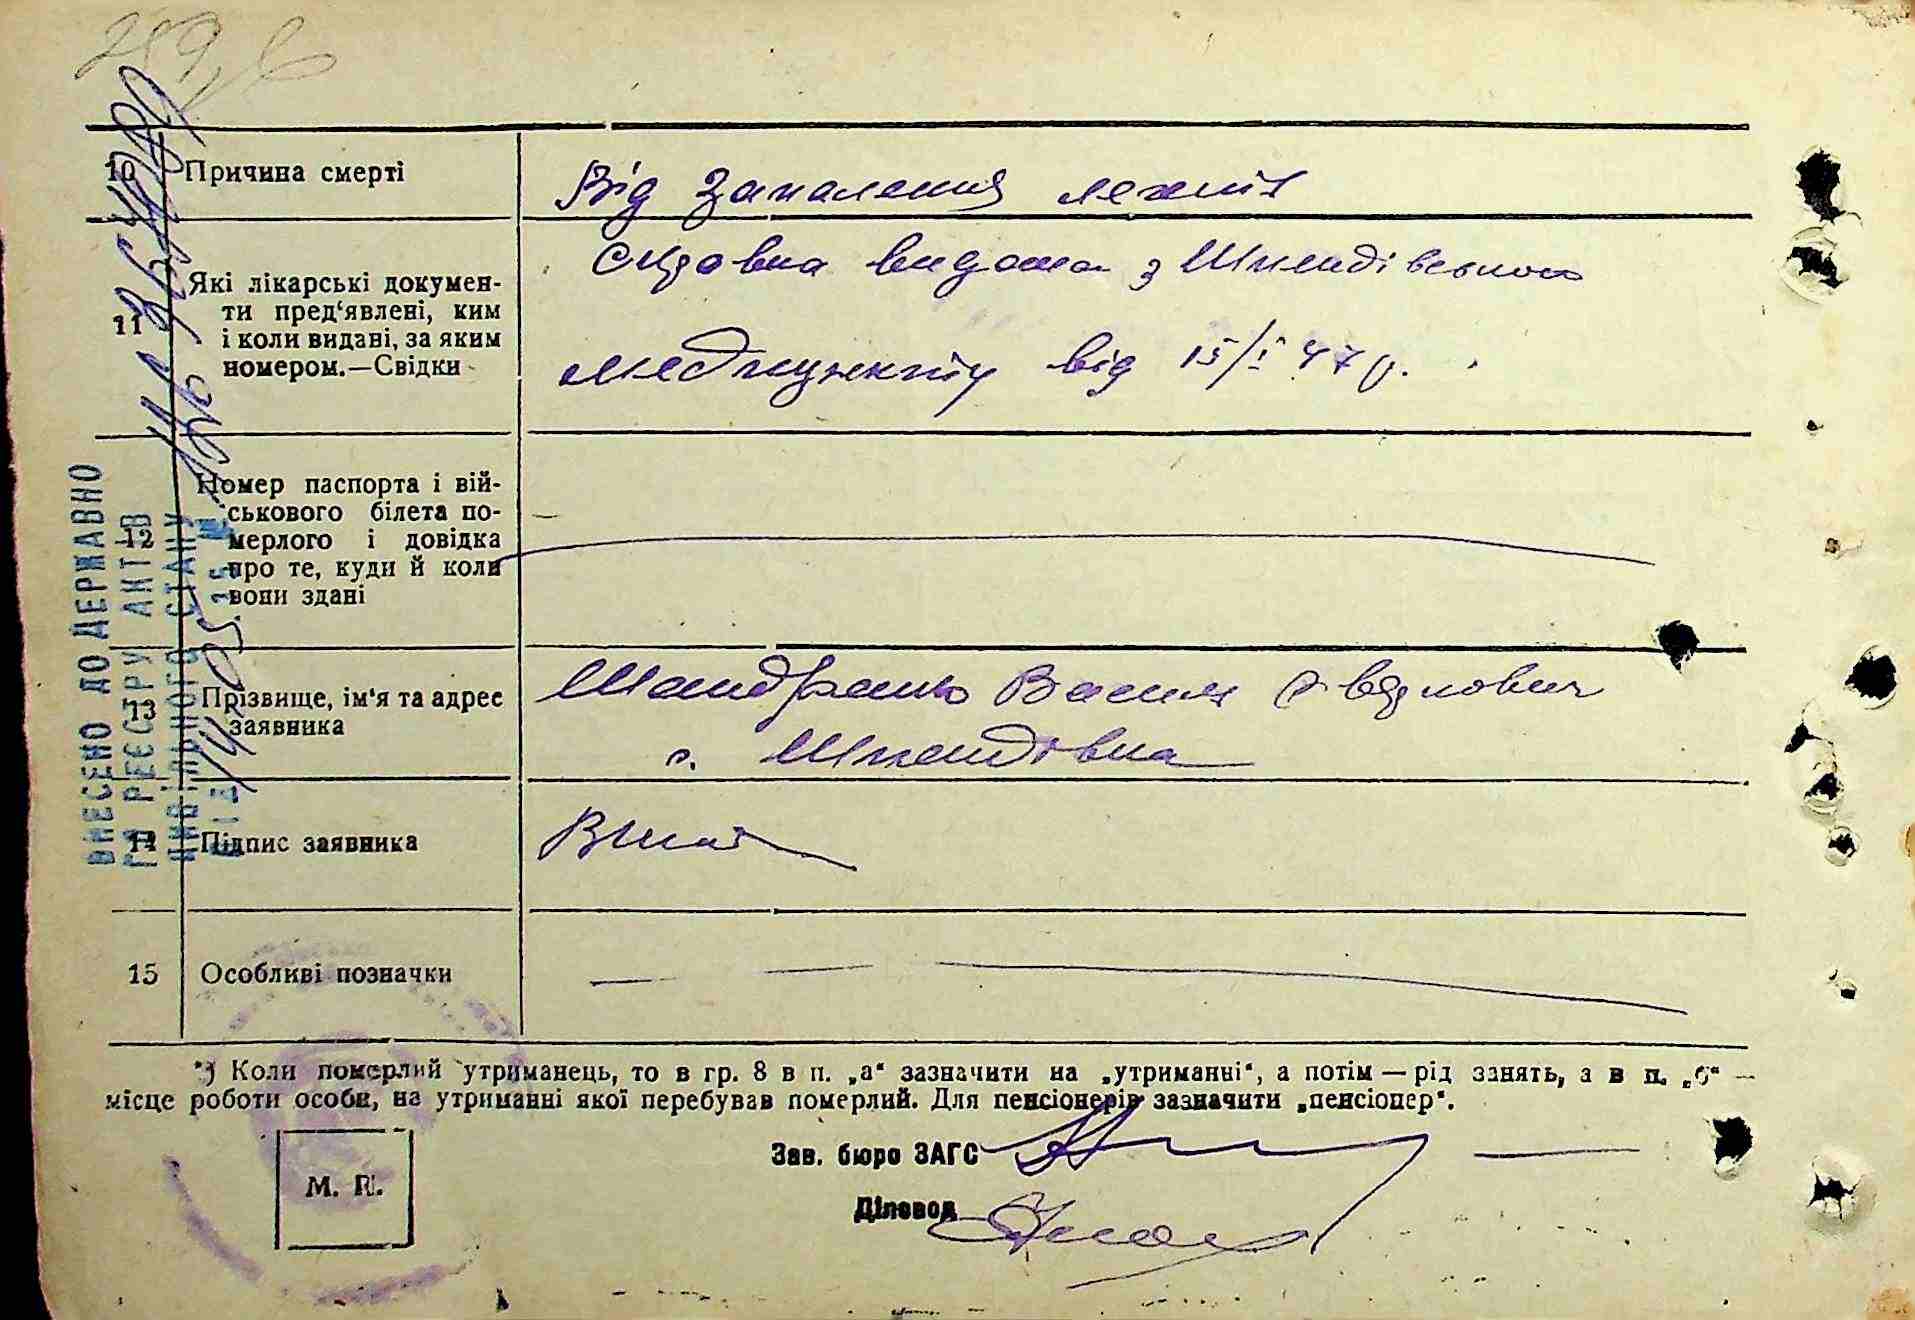 10 Причина смерті
Від запалення легенів
11 Які лікарські докумен-
ти пред‘явлені, ким
і коли видані, за яким
номером.—Свідки
видана з Шпендівського
медпункту від 15/I 47 р.
12 Номер паспорта і вій-
ськового білета по-
мерлого і довідка
про те, куди й коли
вони здані
13 Прізвище, ім‘я та адрес
заявника
Василь
с. Шпендівка
14 Підпис заявника
15 Особливі позначки
*) Коли померлий утриманець, то в гр. 8 в п. „а“ зазначити на „утриманні“, а потім — рід занять, а в п. „б“ —
місце роботи особи, на утриманні якої перебував померлий. Для пенсіонерів зазначити „пенсіонер“.
Зав. бюро ЗАГС
Діловод
М. П.
ВНЕСЕНО ДО ДЕРЖАВНО
ГО РЕЄСТРУ АКТІВ
ЦИВІЛЬНОГО СТАНУ